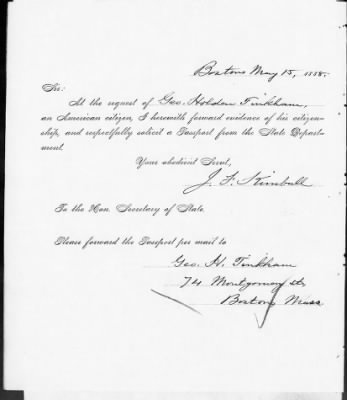 Boston May 15, 1888.
Sir:
At the request of Geo. Holden Tinkham,
an American citizen, I herewith forward evidence of his citizen-
ship, and respectfully solicit a Passport from the State Depart-
ment.
Your obedient Servt,
J. F. Kimball
To the Hon. Secretary of State.
Please forward the Passport per mail to
Geo. H. Tinkham
74 Montgomery St
Boston Mass